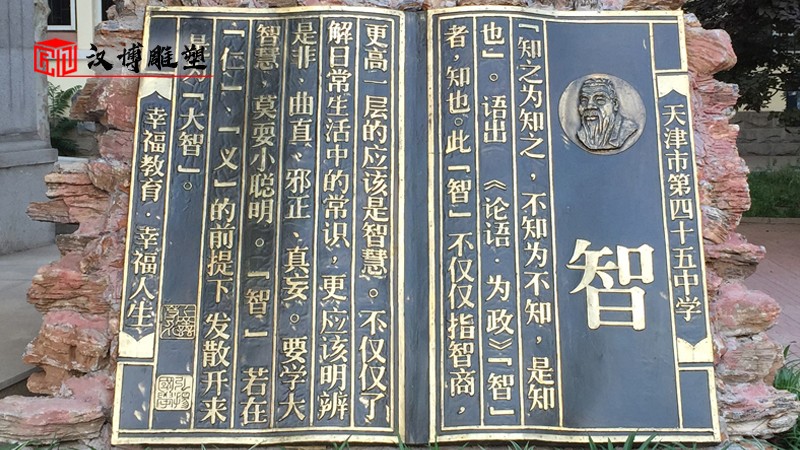 汉博雕塑
天津市第四十五中学
智
「知之为知之，不知为不知，是知
也」。语出《论语·为政》「智」
者，知也。此「智」不仅仅指智商，
更高一层的应该是智慧。不仅仅了
解日常生活中的常识，更应该明辨
是非、曲直、邪正、真妄。要学大
智慧、莫耍小聪明。「智」若在
「仁」、「义」的前提下发散开来
是「大智」。
幸福教育·幸福人生